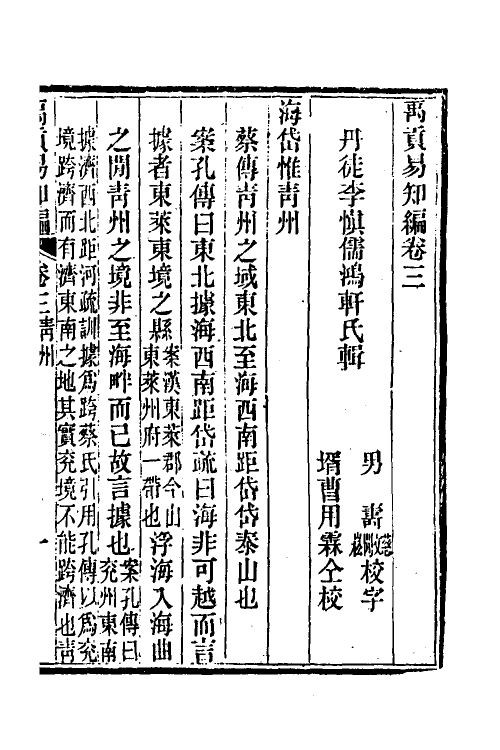 禹貢易知編卷三
丹徒李慎儒鴻軒氏輯
男壽校字
壻曹用霖仝校
海岱惟青州
蔡傳青州之域東北至海西南距岱岱泰山也
案孔傳曰東北據海西南距岱疏曰海非可越而言
據者東萊東境之縣案漢東萊郡今山東萊州府一帶也浮海入海曲
之閒青州之境非至海畔而已故言據也案孔傳曰兖州東南
據濟西北距河疏訓據爲跨蔡氏引用孔傳以爲兖
境跨濟而有濟東南之地其實兖境不能跨濟也靑
禹貢易知編
卷三青州
一